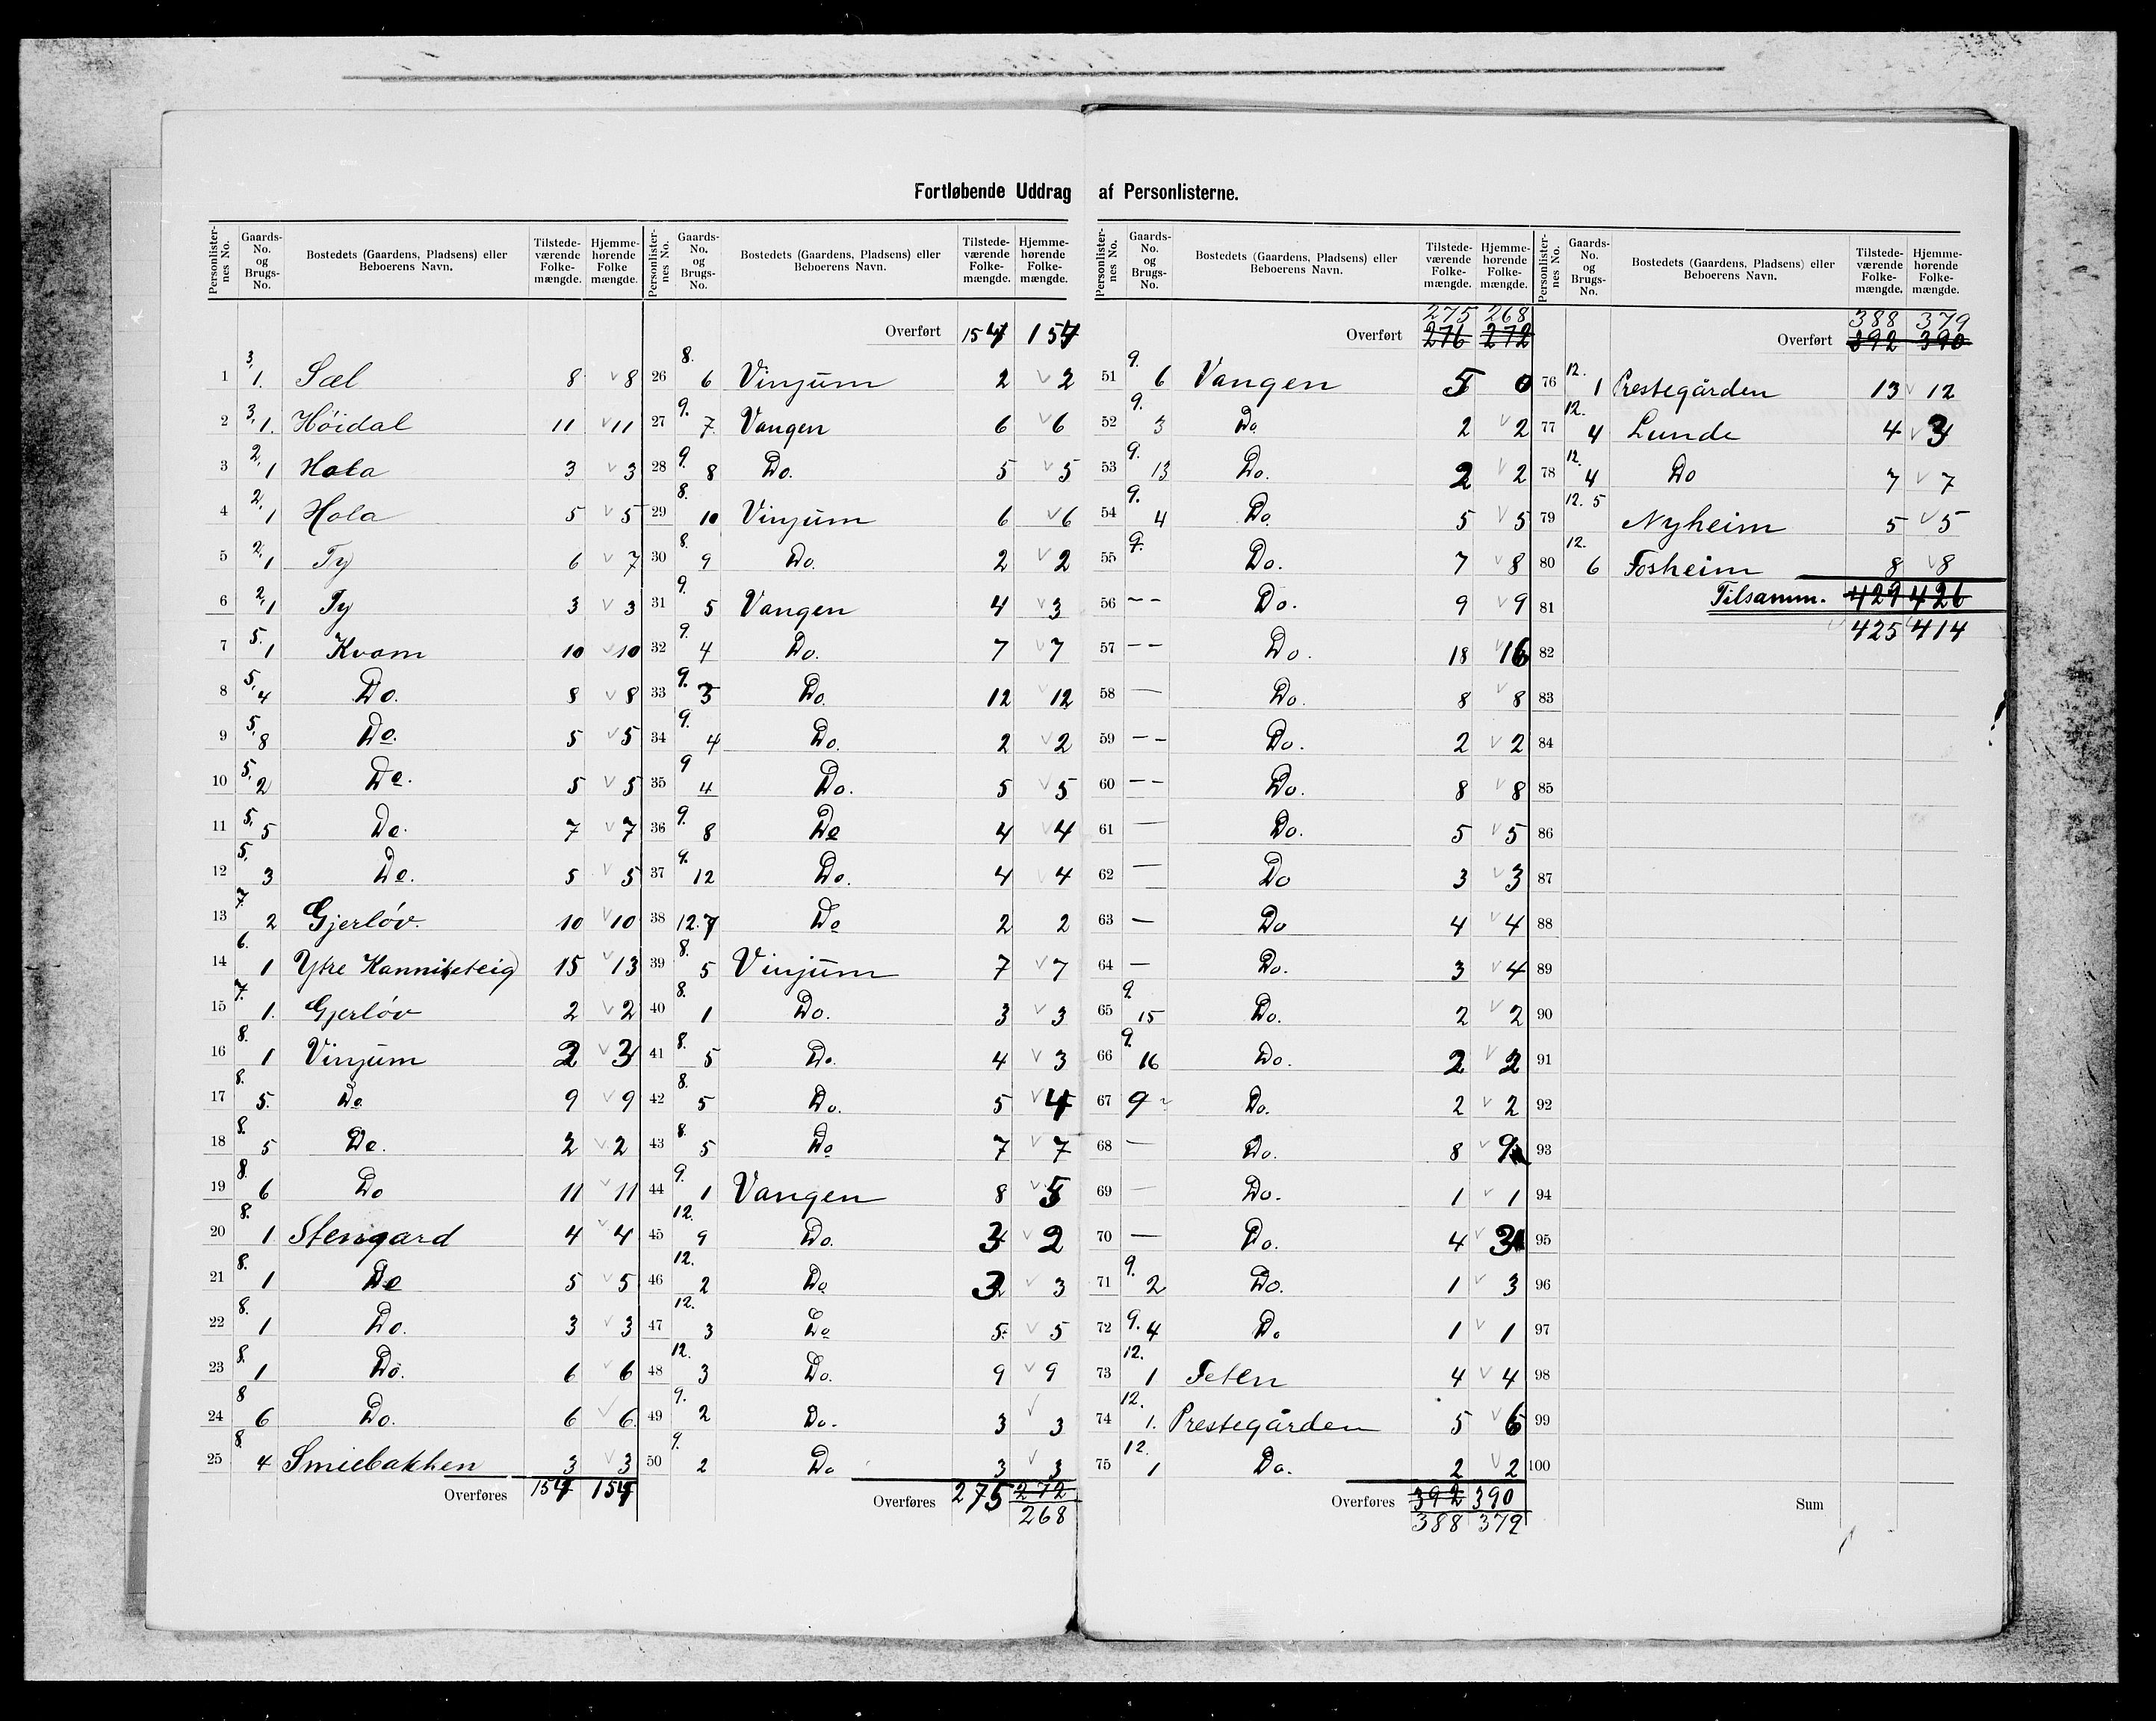 Fortløbende Uddrag af Personlisterne.
Personlisternes No. Gaards-No. og Brugs-No. Bostedets (Gaardens, Pladsens) eller Beboerens Navn. Tilstedeværende Folkemængde. Hjemmehørende Folkemængde.
1 3, 1. Sæl 8 v 8
2 3, 1. Höidal 11 v 11
3 2, 1 Hola 3 v 3
4 2, 1 Hola 5 v 5
5 2, 1 Ty 6 v 7
6 2, 1 Ty 3 v 3
7 5. 1 Kvam 10 v 10
8 5, 4 Do. 8 v 8
9 5, 8 Do. 5 v 5
10 5, 2 Do. 5 v 5
11 5, 5 Do. 7 v 7
12 5, 3 Do. 5 v 5
13 7. 2 Gjerlöv. 10 v 10
14 6. 1 Ytre Kanniketeig 15 v 13
15 7. 1. Gjerlöv 2 v 2
16 8. 1 Vinjum 2 v 3
17 8. 5. Do. 9 v 9
18 8. 5 Do. 2 v 2
19 8. 6 Do 11 v 11
20 8. 1 Stengard 4 v 4
21 8. 1 Do 5 v 5
22 8. 1 Do. 3 v 3
23 8. 1 Do. 6 v 6
24 8 6 Do. 6 v 6
25 8. 4 Smiebakken 3 v 3
Overføres 154 154
Personlisternes No. Gaards-No. og Brugs-No. Bostedets (Gaardens, Pladsens) eller Beboerens Navn. Tilstedeværende Folkemængde. Hjemmehørende Folkemængde.
Overført 154 154
26 8. 6 Vinjum 2 v 2
27 9. 7. Vangen 6 v 6
28 9. 8 Do. 5 v 5
29 8. 10 Vinjum 6 v 6
30 8. 9 Do. 2 v 2
31 9. 5 Vangen 4 v 3
32 9. 4 Do. 7 v 7
33 9. 3 Do. 12 v 12
34 9. 4 Do. 2 v 2
35 9 4 Do. 5 v 5
36 9. 8 Do 4 v 4
37 9. 12 Do. 4 v 4
38 12. 7 Do 2 2
39 8. 5 Vinjum 7 v 7
40 8. 1 Do. 3 v 3
41 8. 5 Do. 4 v 3
42 8. 5 Do. 5 v 4
43 8. 5 Do 7 v 7
44 9. 1 Vangen 8 v 5
45 12. 9 Do. 3 v 2
46 12. 2 Do 3 v 3
47 12. 3 Do 5 v 5
48 12. 3 Do. 9 v 9
49 9. 2 Do. 3 v 3
50 9. 2 Do 3 v 3
Overføres 275 272
268
Personlisternes No. Gaards-No. og Brugs-No. Bostedets (Gaardens, Pladsens) eller Beboerens Navn. Tilstedeværende Folkemængde. Hjemmehørende Folkemængde.
275 268
Overført 276 272
51 9. 6 Vangen 5 0
52 9. 3 Do 2 v 2
53 9. 13 Do. 2 v 2
54 9. 4 Do. 5 v 5
55 9. Do. 7 v 8
56 -- Do. 9 v 9
57 -- Do. 18 v 16
58 — Do. 8 v 8
59 -- Do. 2 v 2
60 -- Do. 8 v 8
61 — Do. 5 v 5
62 — Do 3 v 3
63 — Do 4 v 4
64 — Do. 3 v 4
65 9. 15 Do. 2 v 2
66 9. 16 Do. 2 v 2
67 9 Do. 2 v 2
68 — Do. 8 v 9
69 — Do. 1 v 1
70 — Do. 4 v 3
71 9. 2 Do. 1 v 3
72 9. 4 Do 1 v 1
73 12. 1 Teten 4 v 4
74 12. 1. Prestegården 5 v 6
75 12. 1 Do. 2 v 2
Overføres 392 390
388 379
Personlisternes No. Gaards-No. og Brugs-No. Bostedets (Gaardens, Pladsens) eller Beboerens Navn. Tilstedeværende Folkemængde. Hjemmehørende Folkemængde.
388 379
Overført 392 390
76 12. 1 Prestegården 13 v 12
77 12. 4 Lunde 4 v 3
78 12. 4 Do 7 v 7
79 12. 5 Nyheim 5 v 5
80 12. 6 Fosheim 8 v 8
81 Tilsamm. 429 426
82 425 414
83
84
85
86
87
88
89
90
91
92
93
94
95
96
97
98
99
100
Sum